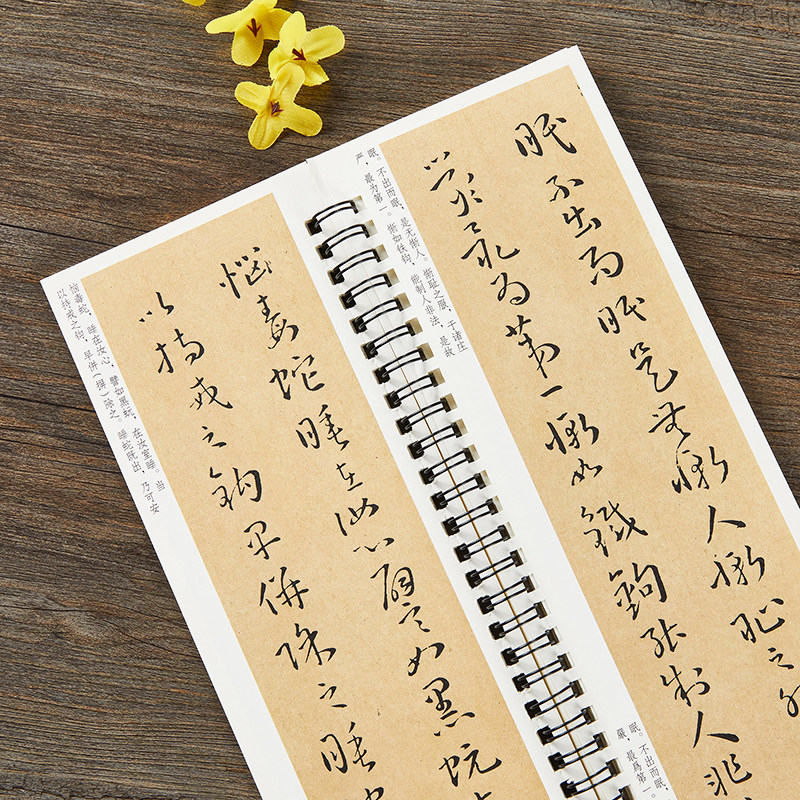 眠不出而眠是無慚人慚恥之
嚴最為第一慚如鐵鉤能制人非
眠。不出而眠，是无惭人。惭耻之服，于诸庄
严，最为第一。惭如铁钩，能制人非法，是故
眠。不出而眠，
嚴，最爲第一。
惱毒蛇睡在汝心譬如黑蚖
以持戒之鉤早併除之睡
恼毒蛇，睡在汝心，譬如黑蚖，在汝室睡。当
以持戒之钩，早併（摒）除之。睡蛇既出，乃可安